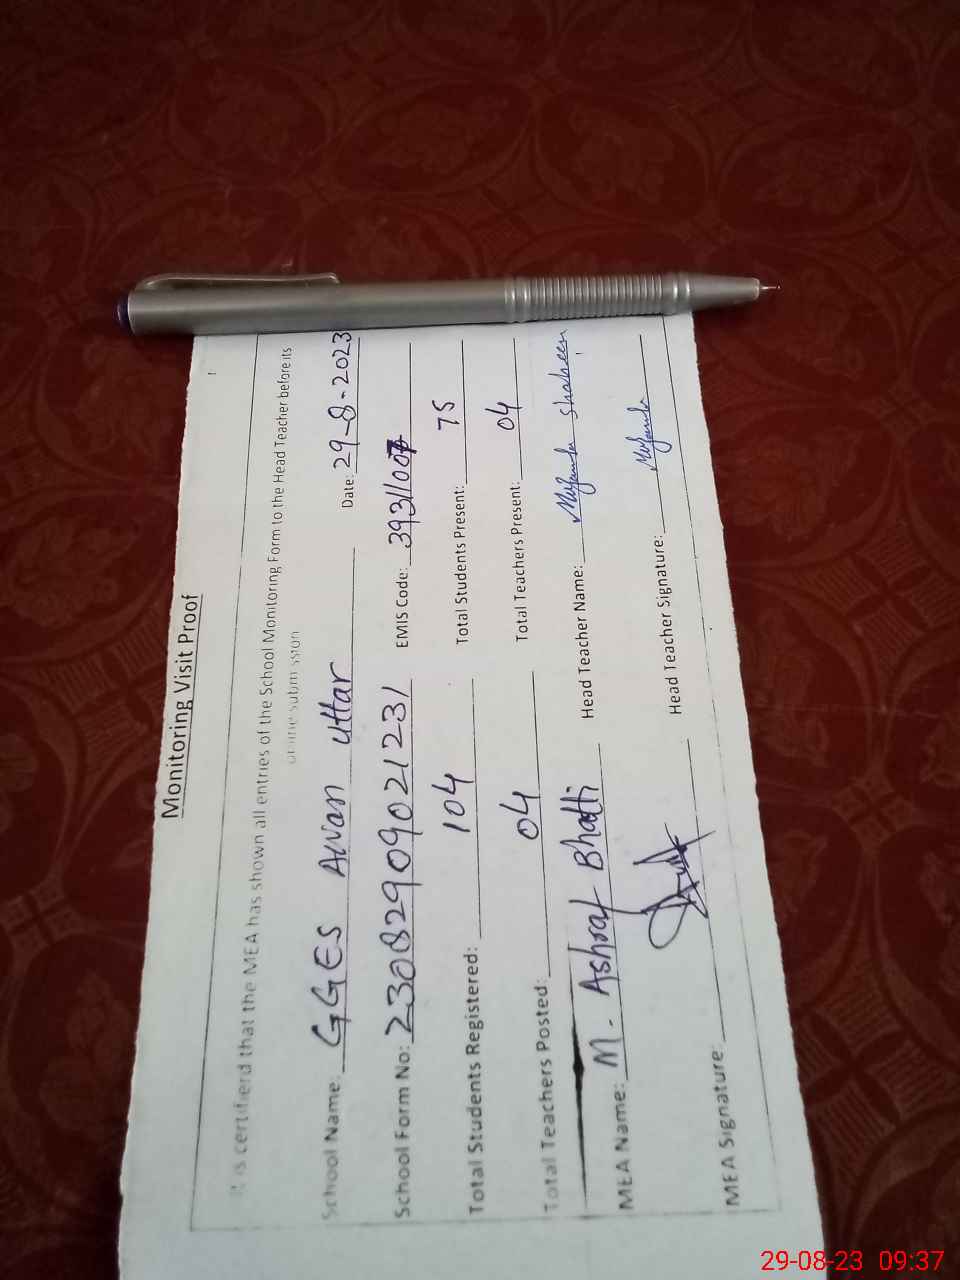 Monitoring Visit Proof
It is certifierd that the MEA has shown all entries of the School Monitoring Form to the Head Teacher before its
online submission
School Name: GGES Awan Uttar Date: 29-8-2023
School Form No: 23082909021231 EMIS Code: 39311007
Total Students Registered: 104 Total Students Present: 75
Total Teachers Posted: 04 Total Teachers Present: 04
MEA Name: M. Ashraf Bhatti Head Teacher Name: shaheen
MEA Signature: Head Teacher Signature:
29-08-23 09:37